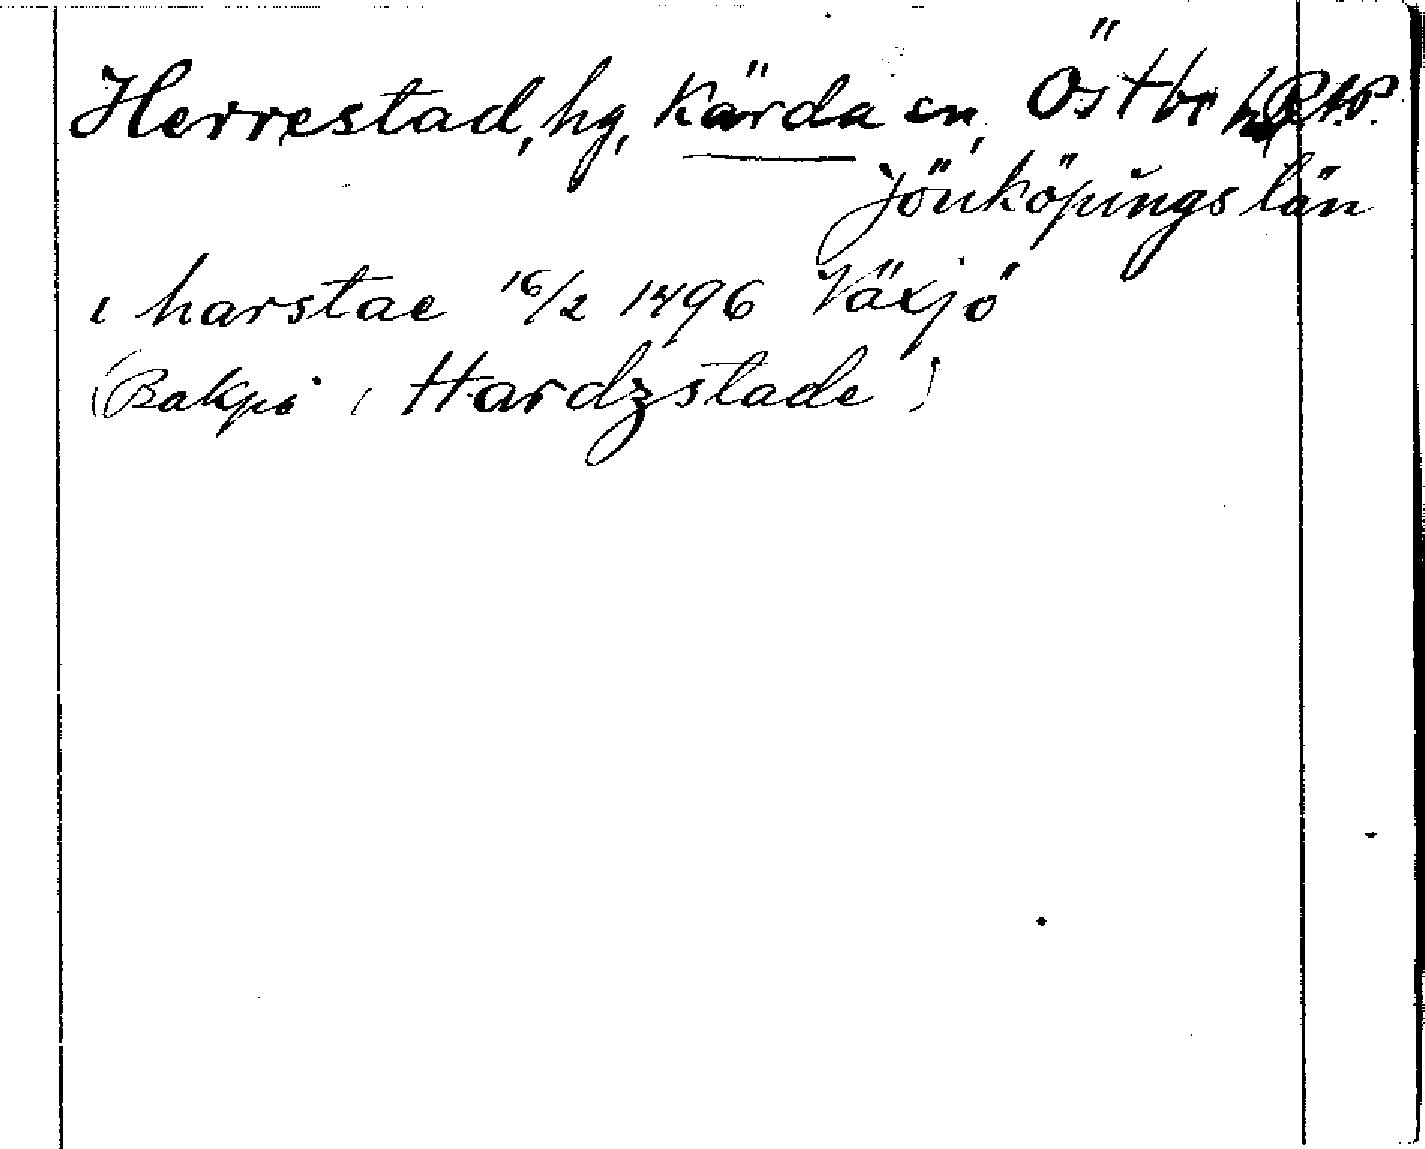 Herrestad, hg, Kärda sn, Östbo
Jönköpings län
i harstae 16/2 1496 Växjö
(Bakpå: Hardzstade)